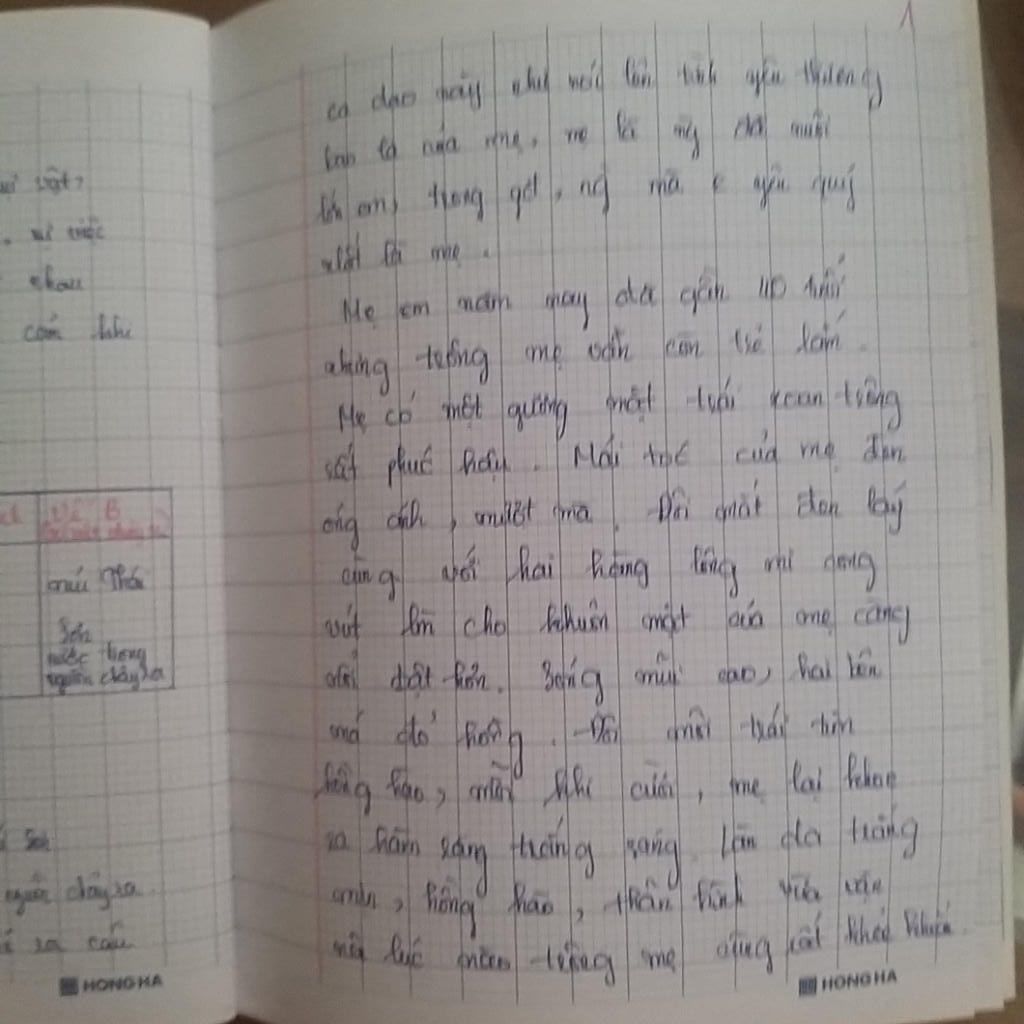 sự vật,
sự việc
nhau
cảm khi
Vế B
mẹ Thái
Sơn
nước trong
nguồn chảy ra
Sơn
nguồn chảy ra
ra câu
HONG HA
1
ca dao này như nói lên tình yêu thương
của mẹ, mẹ là ng đã nuôi
em, trong gđ, ng mà e yêu quý
nhất là mẹ.
Mẹ em năm nay đã gần 40 tuổi
nhưng trông mẹ vẫn còn trẻ lắm.
Mẹ có một gương mặt trái xoan trông
rất phúc hậu. Mái tóc của mẹ đen
óng ánh, mượt mà. Đôi mắt đen láy
cùng với hai hàng lông mi cong
vút làm cho khuôn mặt của mẹ càng
nổi bật hơn. Sống mũi cao, hai bên
má đỏ hồng. Đôi môi trái tim
hồng hào, mỗi khi cười, mẹ lại khoe
ra hàm răng trắng sáng. Làn da trắng
mịn, hồng hào, thân hình vừa vặn
lúc nào trông mẹ cũng rất khỏe khoắn.
HONG HA